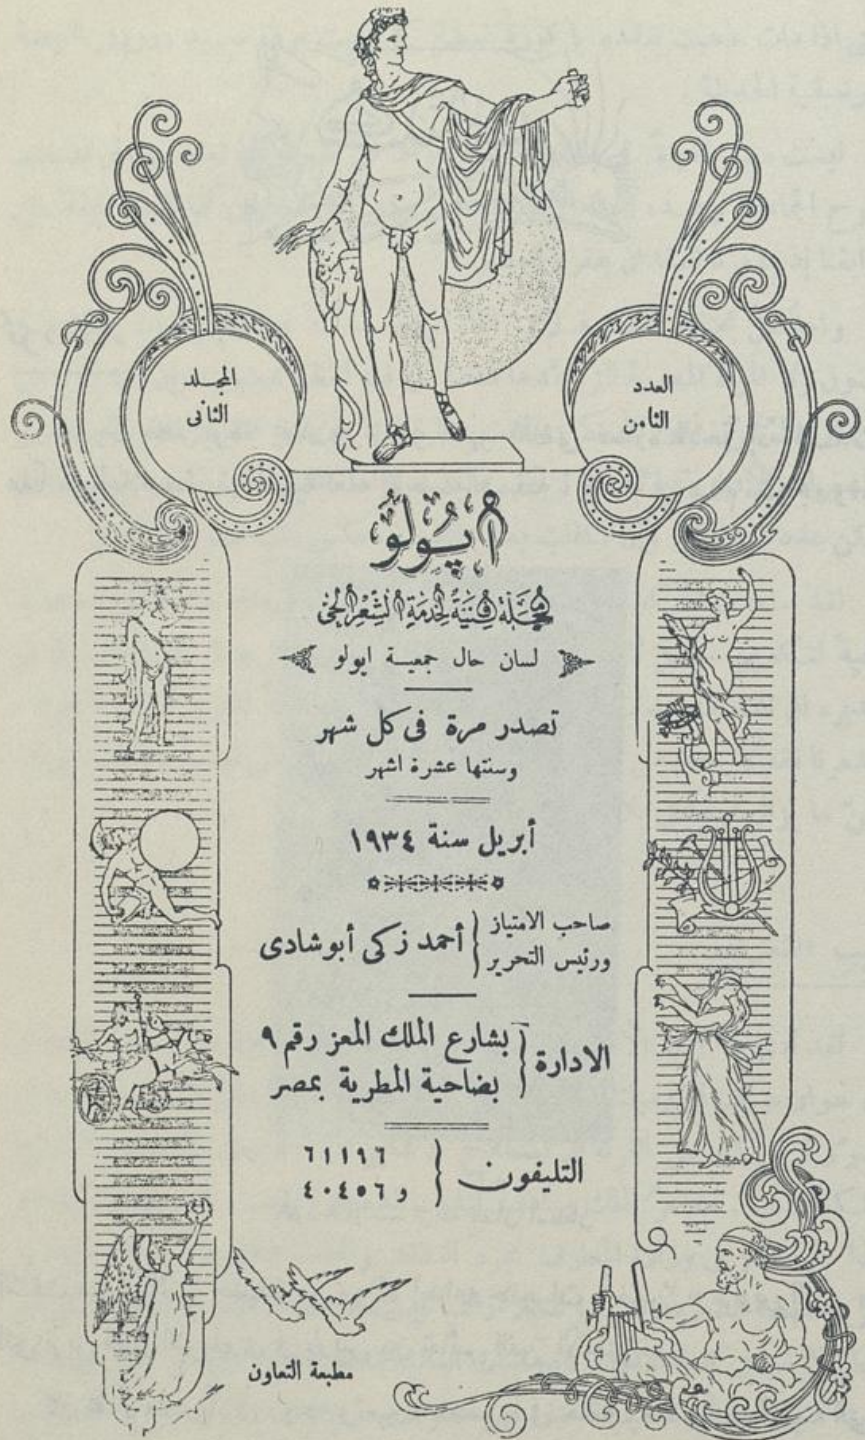 العدد
الثامن
المجلد
الثانى
اپولو
مجلة فنية لخدمة الشعر الحى
لسان حال جمعية ابولو
تصدر مرة فى كل شهر
وسنتها عشرة اشهر
أبريل سنة ١٩٣٤
صاحب الامتياز
ورئيس التحرير
أحمد زكى أبو شادى
الادارة
بشارع الملك المعز رقم ٩
بضاحية المطرية بمصر
التليفون
٦١١٩٦
و ٤٠٤٥٦
مطبعة التعاون